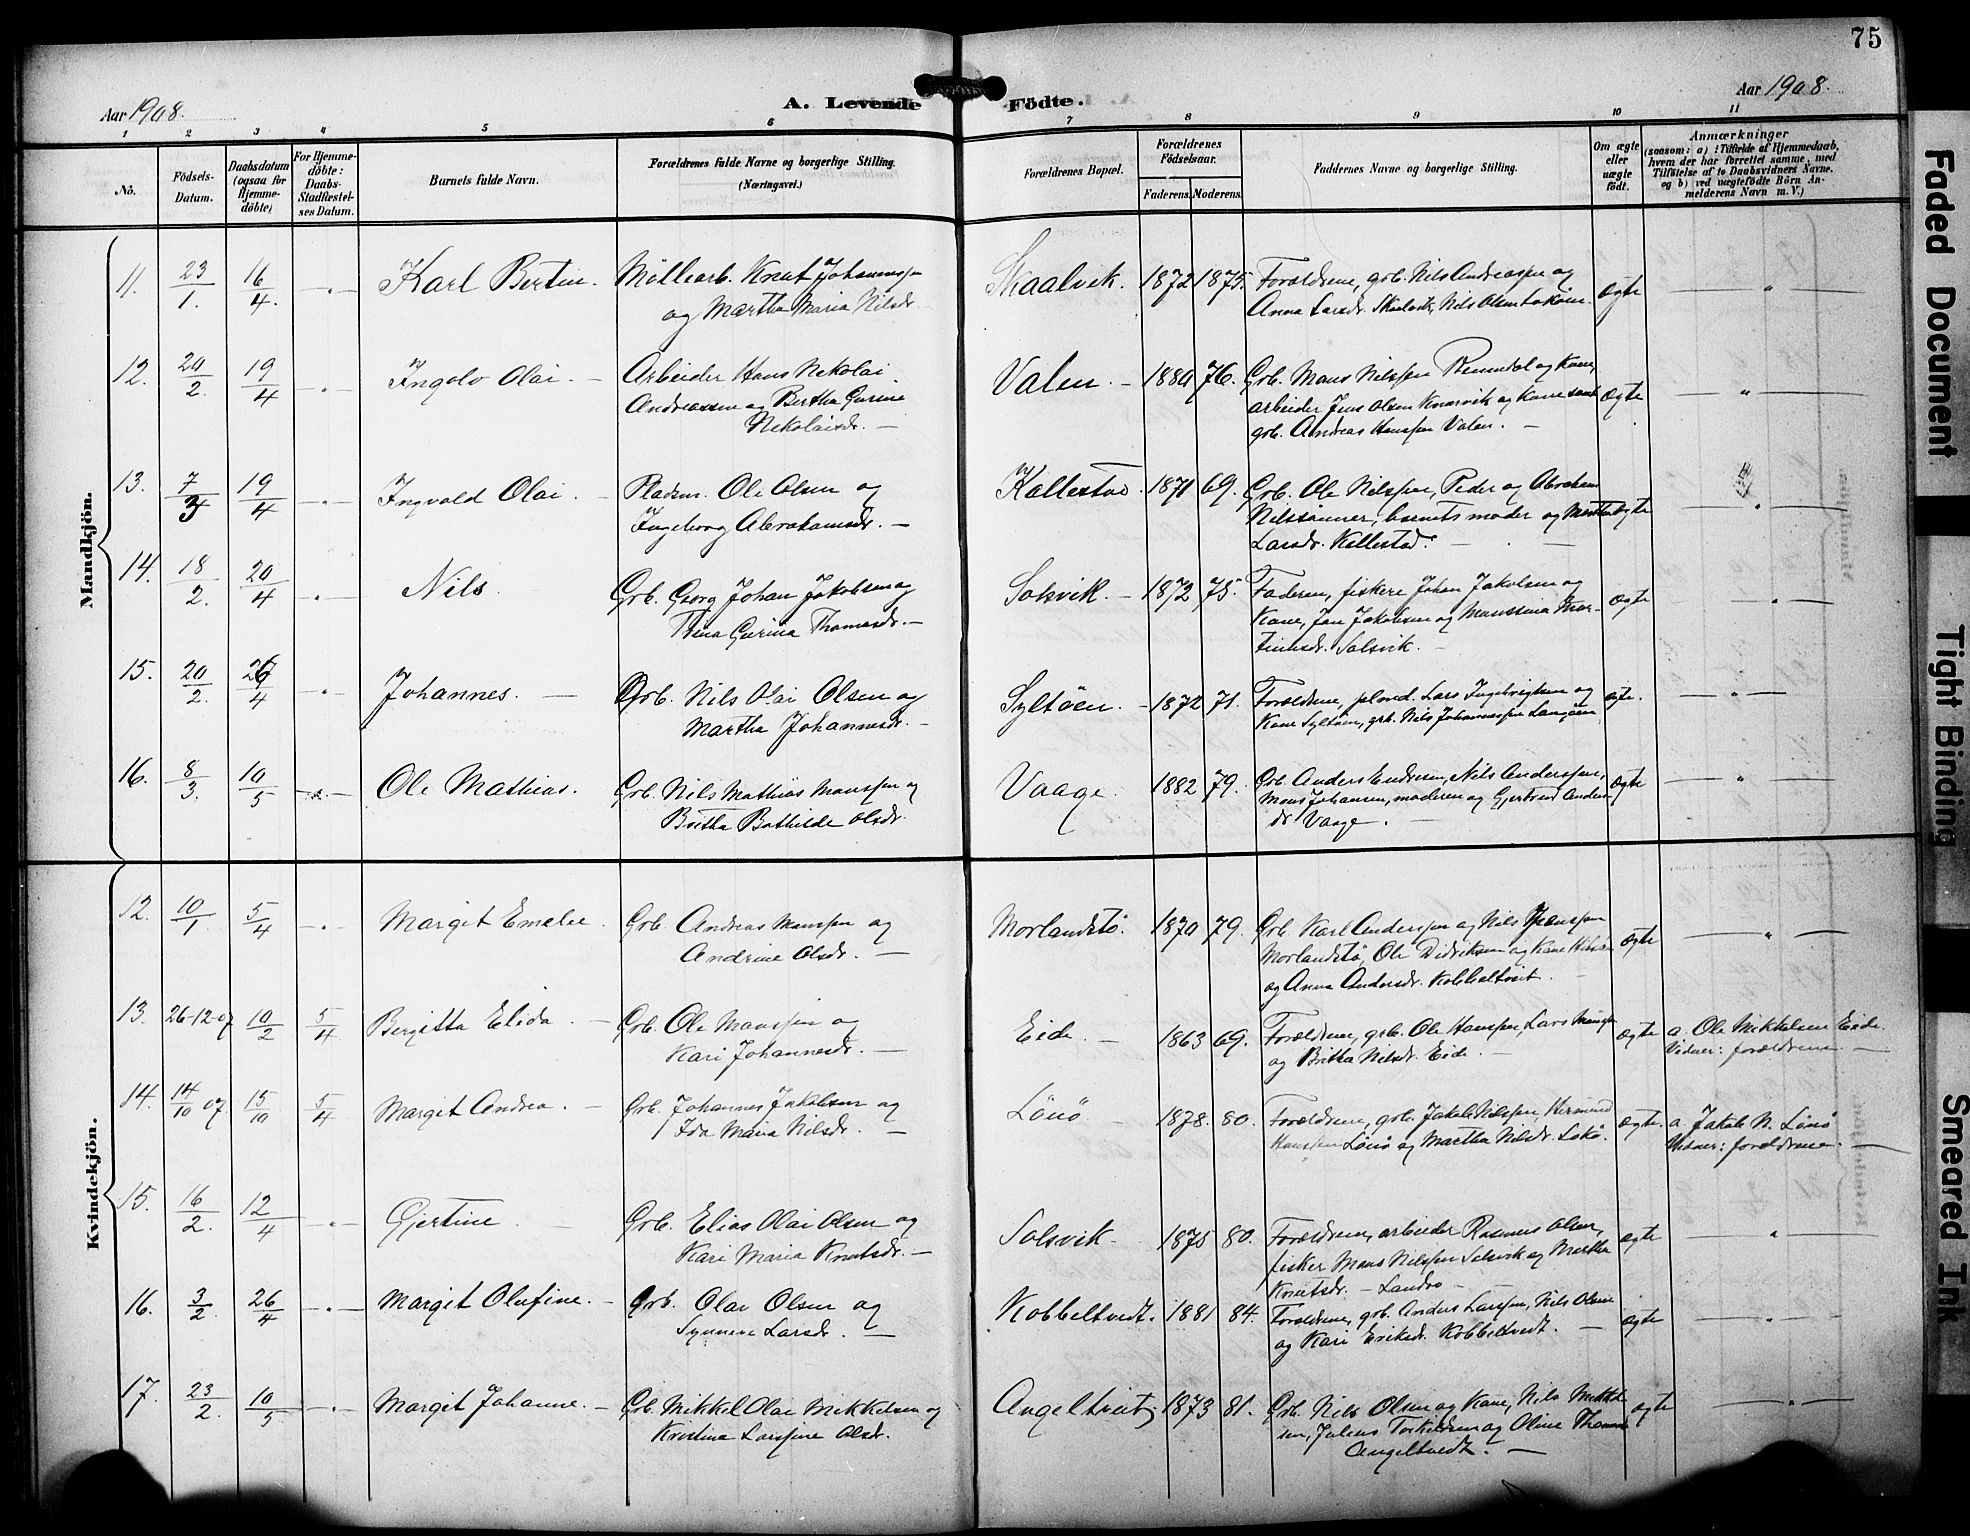 75
Aar 1908.
A. Levende Födte.
Aar 1908.
1 2 3 4 5 6 7 8 9 10 11
No.
Födsels-Datum.
Daabsdatum (ogsaa for Hjemme-döbte)
For Hjemme-döbte: Daabs-Stadfæstel-ses Datum.
Barnets fulde Navn.
Forældrenes fulde Navne og borgerlige Stilling.
(Næringsvei.)
Forældrenes Bopæl.
Forældrenes Födselsaar.
Faderens. Moderens.
Faddernes Navne og borgerlige Stilling.
Om ægte eller uægte födt.
Anmærkninger
(saasom: a) i Tilfælde af Hjemmedaab,
hvem der har forrettet samme, med
Tilföielse af to Daabsvidners Navne.
og b) ved uægtefödte Börn An-
melderens Navn m. V.)
Mandkjön.
11. 23/1. 16/4. Karl Bertin. Möllearb. Knut Johannessen Skaalvik. 1872 1875. Forældrene, grb. Nils Andreassen og ægte
og Martha Maria Nilsdr. Anna Larsdr. Skaalvik, Nils Olsen
12. 20/2. 19/4 Ingolv Olai. Arbeider Hans Nikolai Valen. 1880 76. Grb. Mons Nilssen og Kone, ægte
Andreassen og Bertha Gurine arbeider Jens Olsen Knarvik og Kone samt
Nikolaisdr. grb. Andreas Hanssen Valen.
13. 7/3 19/4 Ingvald Olai. Pladsm. Ole Olsen og Kallestad. 1871 69. Grb. Ole Nilssen, Peder og Abraham
Ingeborg Abrahamsdr. Nilssönner, barnets moder og Martha ægte
Larsdr. Kallestad.
14. 18/2. 20/4 Nils Grb. Georg Johan Jakobsen og Solsvik. 1872 75. Faderen, fiskere Johan Jakobsen og ægte
Trina Gurina Thomasdr. Kone, Jan Jakobsen og Monssina Mor-
tinusdr. Solsvik.
15. 20/2. 26/4 Johannes. Grb. Nils Olai Olsen og Syltöen. 1872 71. Forældrene, Lars Ingebrigtsen og ægte.
Martha Johannesdr. Kone Syltöen, grb. Nils Johannessen Langöen
16. 8/3. 10/5 Ole Mathias. Grb. Nils Mathias Monssen og Vaage. 1882 79. Grb. Anders Endresen, Nils Anderssen, ægte
Britha Bathilde Olsdr. Mons Johansen, moderen og Gjertrud Anders-
dr. Vaage.
Kvindekjön.
12. 10/1. 5/4 Margit Emelie. Grb. Andreas Monssen og Morlandstö. 1870 79. Grb. Karl Anderssen og Nils Jenssen ægte
Andrine Olsdr. Morlandstö, Ole Didriksen og Kone
og Anna Andersdr. Kobbeltveit.
13. 26-12-07 10/2 5/4 Bergitta Elida Grb. Ole Monssen og Eide. 1863 69. Forældrene, grb. Ole Hanssen, Lars Monssen ægte a. Ole Mikkelsen Eide.
Kari Johannesdr. og Britha Nilsdr. Eide. Vidner: forældrene.
14. 14/10 07 15/10 5/4 Margit Andrea. Grb. Johannes Jakobsen og Lönö 1878. 80. Forældrene, grb. Jakob Nilssen, Hermund ægte. a. Jakob N. Lönö
Ida Maria Nilsdr. Hanssen Lönö og Martha Nilsdr. Lokö. Vidner: forældrene.
15. 16/2. 12/4 Gjertine Grb. Elias Olai Olsen og Solsvik. 1875 80. Forældrene, arbeider Rasmus Olsen, ægte
Kari Maria Knutsdr. fisker Mons Nilssen Solsvik og Martha
Knutsdr. Landro
16. 3/2. 26/4 Margit Olufine. Grb. Olai Olsen og Kobbeltvedt. 1881 84. Forældrene, grb. Anders Larssen, Nils Olsen ægte
Synneve Larsdr. og Kari Eriksdr. Kobbeltvedt.
17. 23/2. 10/5 Margit Johanne. Grb. Mikkel Olai Mikkelsen og Angeltveit, 1873 81. Grb. Nils Olsen og Kone, Nils Mikkel- ægte
Kristina Larssine Olsdr. sen, Julius Torkildsen og Oline Thomas
Angeltvedt.
Faded Document
Tight Binding
Smeared Ink